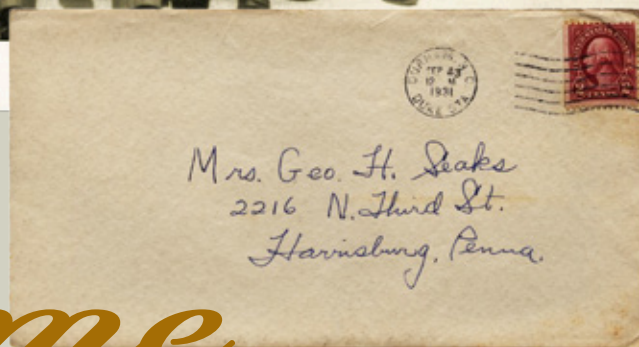 DURHAM, N.C.
SEP 23
12 M
1931
DUKE STA.
Mrs. Geo. H. Seaks
2216 N. Third St.
Harrisburg, Penna.
me